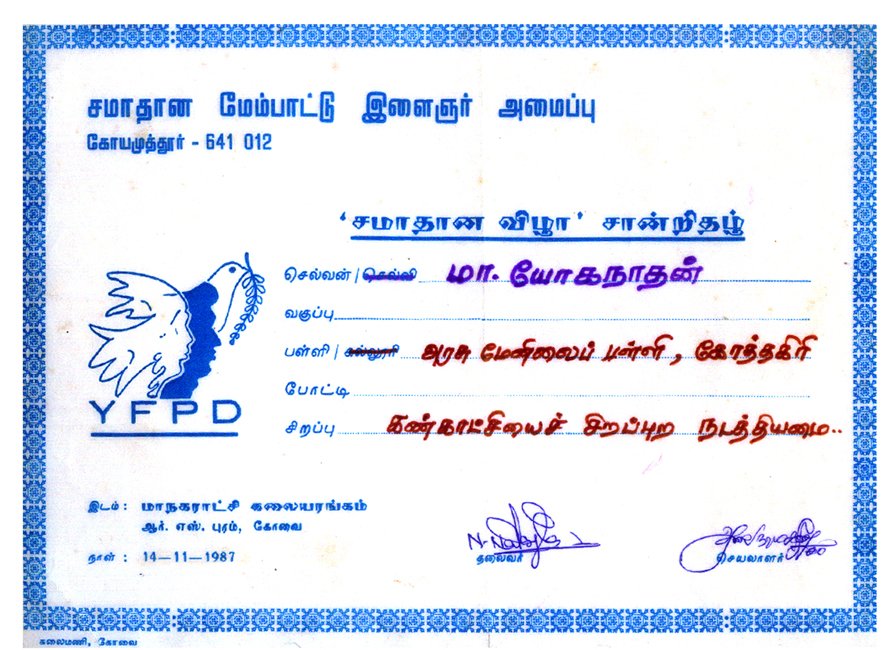 சமாதான மேம்பாட்டு இளைஞர் அமைப்பு
கோயமுத்தூர் - 641 012
‘சமாதான விழா’ சான்றிதழ்
செல்வன் / செல்வி மா. யோகநாதன்
வகுப்பு
பள்ளி / கல்லூரி அரசு மேனிலைப் பள்ளி, கோத்தகிரி
போட்டி
சிறப்பு கண்காட்சியைச் சிறப்புற நடத்தியமை..
YFPD
இடம் : மாநகராட்சி கலையரங்கம்
ஆர். எஸ். புரம், கோவை
நாள் : 14—11—1987
தலைவர் செயலாளர்
கலைமணி, கோவை